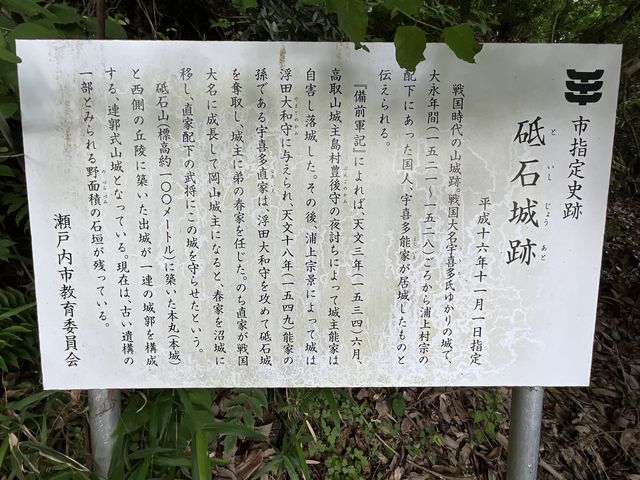 市指定史跡
砥石城跡
といしじょうあと
平成十六年十一月一日指定
戦国時代の山城跡。戦国大名宇喜多氏ゆかりの城で、
大永年間(一五二一～一五二八)ごろから浦上村宗の
配下にあった国人、宇喜多能家が居城したものと
伝えられる。
『備前軍記』によれば、天文三年(一五三四)六月、
高取山城主島村豊後守の夜討ちによって城主能家は
自害し落城した。その後、浦上宗景によって城は
浮田大和守に与えられ、天文十八年(一五四九)能家の
孫である宇喜多直家は、浮田大和守を攻めて砥石城
を奪取し、城主に弟の春家を任じた。のち直家が戦国
大名に成長して岡山城主になると、春家を沼城に
移し、直家配下の武将にこの城を守らせたという。
砥石山(標高約一〇〇メートル)に築いた本丸(本城)
と西側の丘陵に築いた出城が一連の城郭を構成
する、連郭式山城となっている。現在は、古い遺構の
一部とみられる野面積の石垣が残っている。
瀬戸内市教育委員会